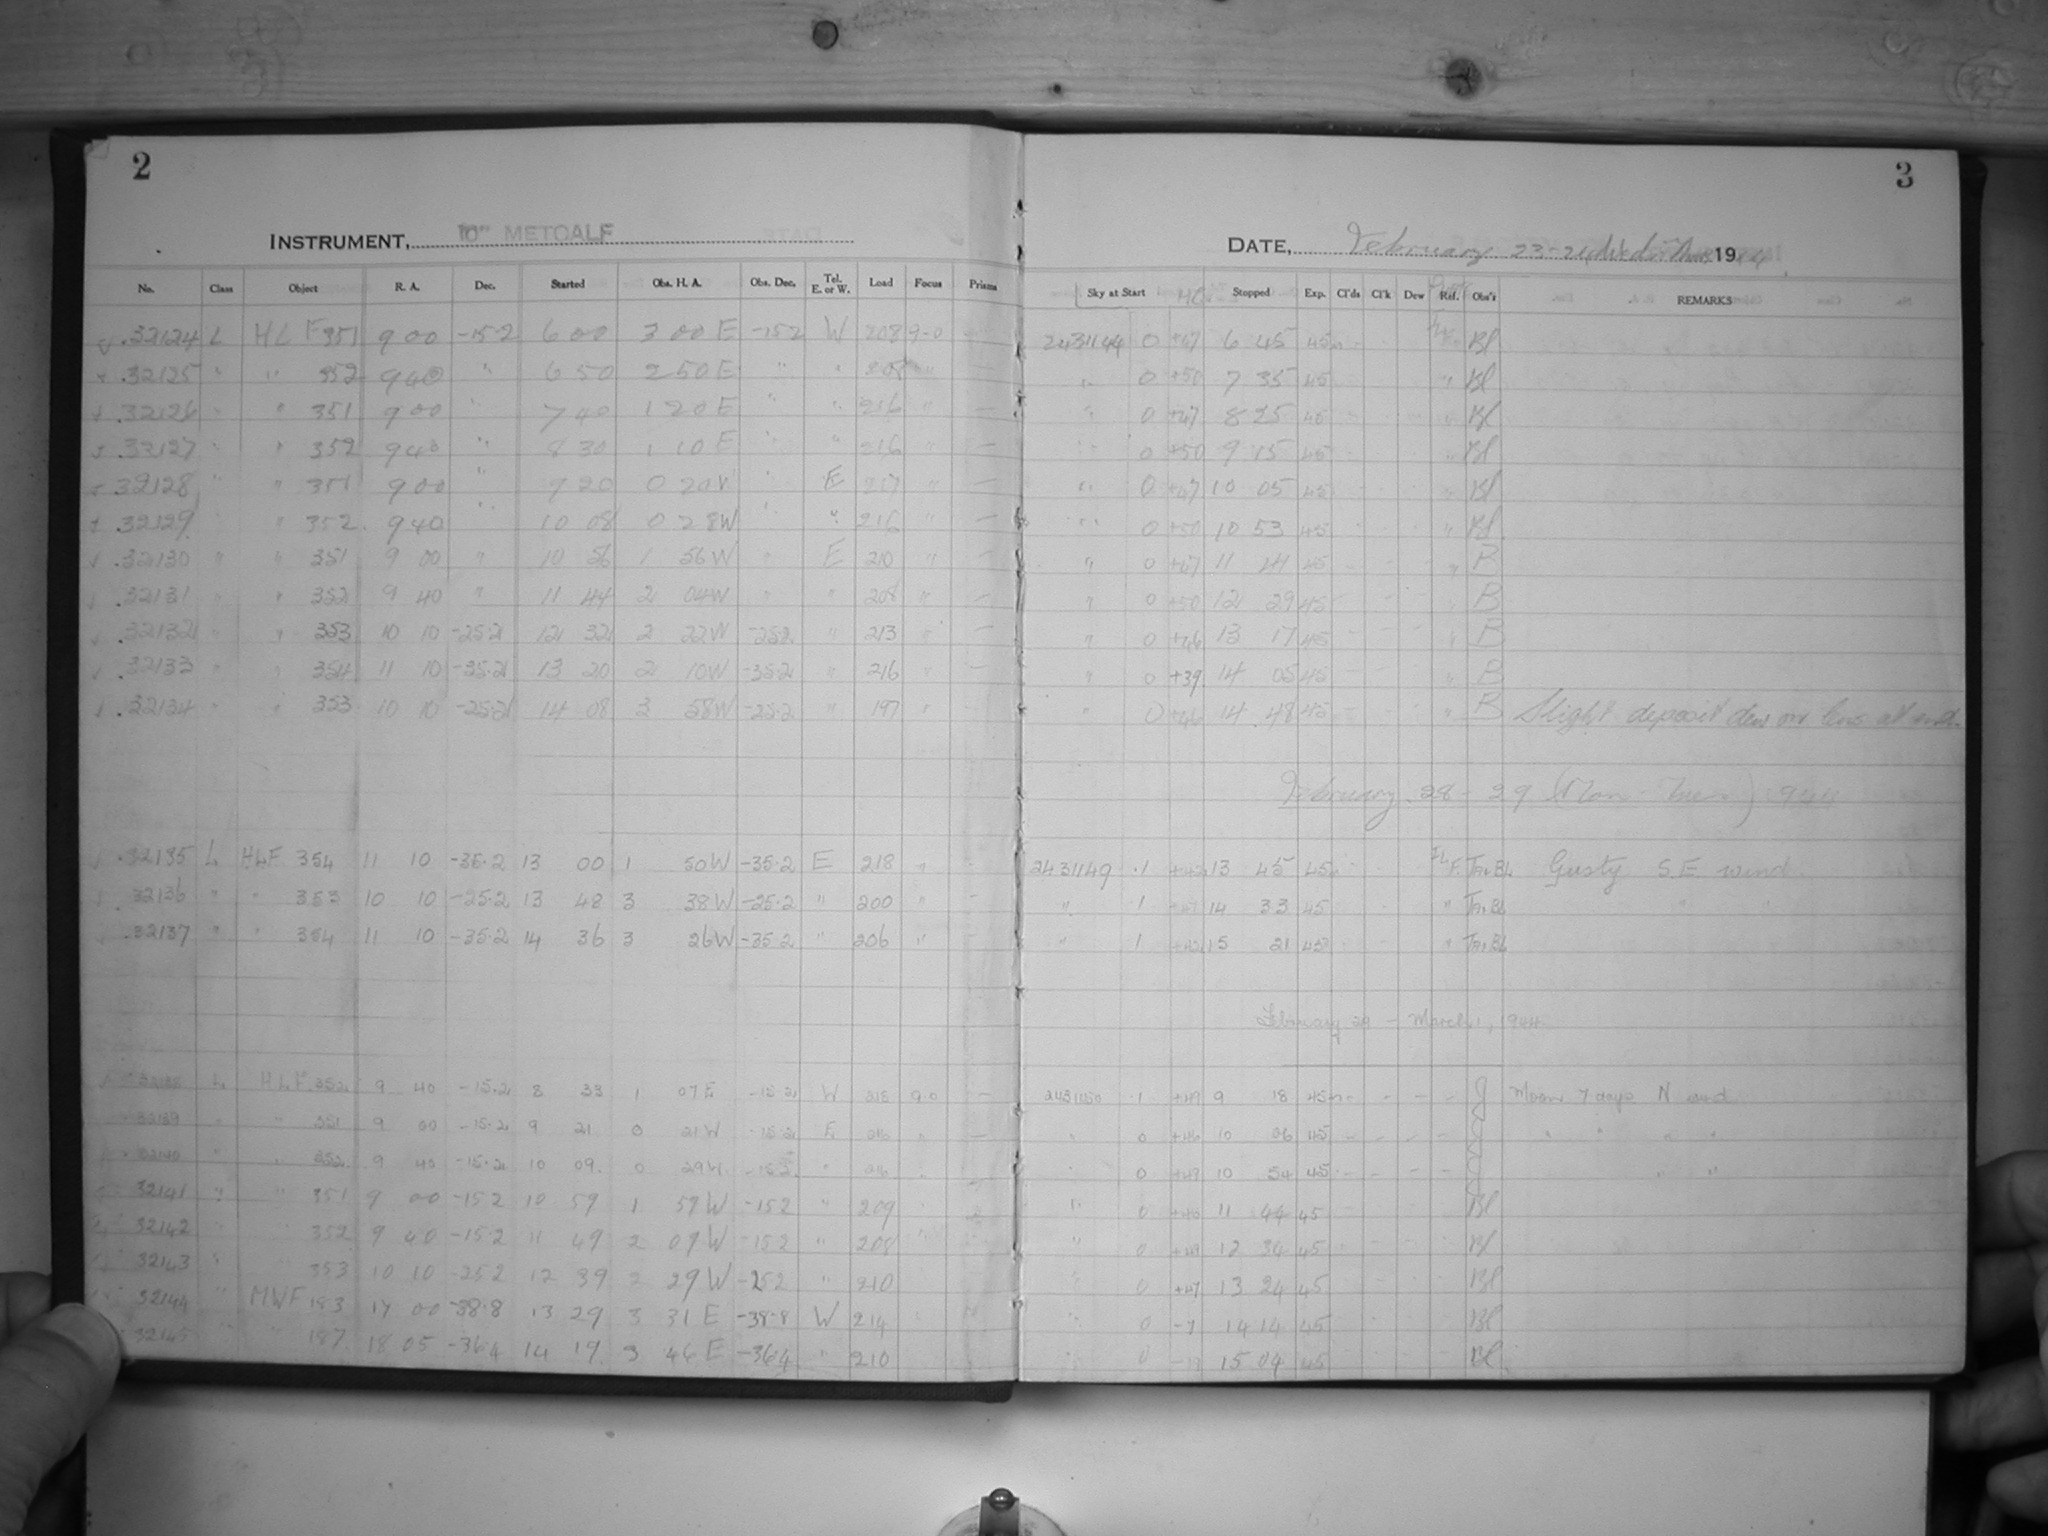 2
3
INSTRUMENT, 10" METCALF
DATE, February 23-24 1944
No. Class Object R. A. Dec. Started Obs. H. A. Obs. Dec. Tel. E. or W. Load Focus Prisms Sky at Start Stopped Exp. Cl'ds Cl'k Dew Ref. Obs'r REMARKS
32124 L HLF 351 9 00 -15.2 6 00 3 00 E -15.2 W 208 9.0 2431144 0 +47 6 45 45m Bl
32125 " " 352 9 40 " 6 50 2 50 E " " 208 " " 0 +50 7 35 45 " Bl
32126 " " 351 9 00 " 7 40 1 20 E " " 216 " — " 0 +47 8 25 45 " Bl
32127 " " 352 9 40 " 8 30 1 10 E " " 216 " — " 0 +50 9 15 45 " Bl
32128 " " 351 9 00 " 9 20 0 20 W " E 217 " — " 0 +47 10 05 45 " Bl
32129 " 352 9 40 " 10 08 0 28 W " " 216 " — " 0 +50 10 53 45 " Bl
32130 " " 351 9 00 " 10 56 1 56 W " E 210 " — " 0 +47 11 45 " B
32131 " " 352 9 40 " 11 44 2 04 W " " 208 " — " 0 +50 12 29 45 " B
32132 " " 353 10 10 -25.2 12 32 2 22 W -25.2 " 213 " — " 0 +46 13 17 45 " B
32133 " " 354 11 10 -35.2 13 20 2 10 W -35.2 " 216 " — " 0 +39 14 05 45 " B
32134 " " 353 10 10 -25.2 14 08 3 58 W -25.2 " 197 " " 0 +46 14 48 45 " B Slight deposit dew on lens at end.
February 28-29 (Mon - Tues) 1944
32135 L HLF 354 11 10 -35.2 13 00 1 50 W -35.2 E 218 " 2431149 .1 13 45 45m Gusty S.E. wind.
32136 " " 353 10 10 -25.2 13 48 3 38 W -25.2 " 200 " - " 1 14 33 45 " " "
32137 " " 354 11 10 -35.2 14 36 3 26 W -35.2 " 206 " " 1 15 21 45 "
February 29 - March 1, 1944
32138 L HLF 352 9 40 -15.2 8 33 1 07 E -15.2 W 218 9.0 — 2431150 .1 +49 9 18 45m J Moon 7 days N wind
32139 " 351 9 00 -15.2 9 21 0 21 W -15.2 E 216 — " 0 +46 10 06 45 J " " " "
32140 " " 352 9 40 -15.2 10 09 0 29 W -15.2 " 216 0 +49 10 54 45 J " "
32141 " " 351 9 00 -15.2 10 59 1 59 W -15.2 " 209 " 0 +46 11 44 45 Bl
32142 " 352 9 40 -15.2 11 49 2 09 W -15.2 " 208 " 0 +49 12 34 45 Bl
32143 " 353 10 10 -25.2 12 39 2 29 W -25.2 " 210 " 0 +47 13 24 45 Bl
32144 " MWF 183 17 00 -38.8 13 29 3 31 E -38.8 W 214 " 0 -7 14 14 45 Bl
32145 " 187 18 05 -36.4 14 19 3 46 E -36.4 " 210 0 15 04 45 Bl